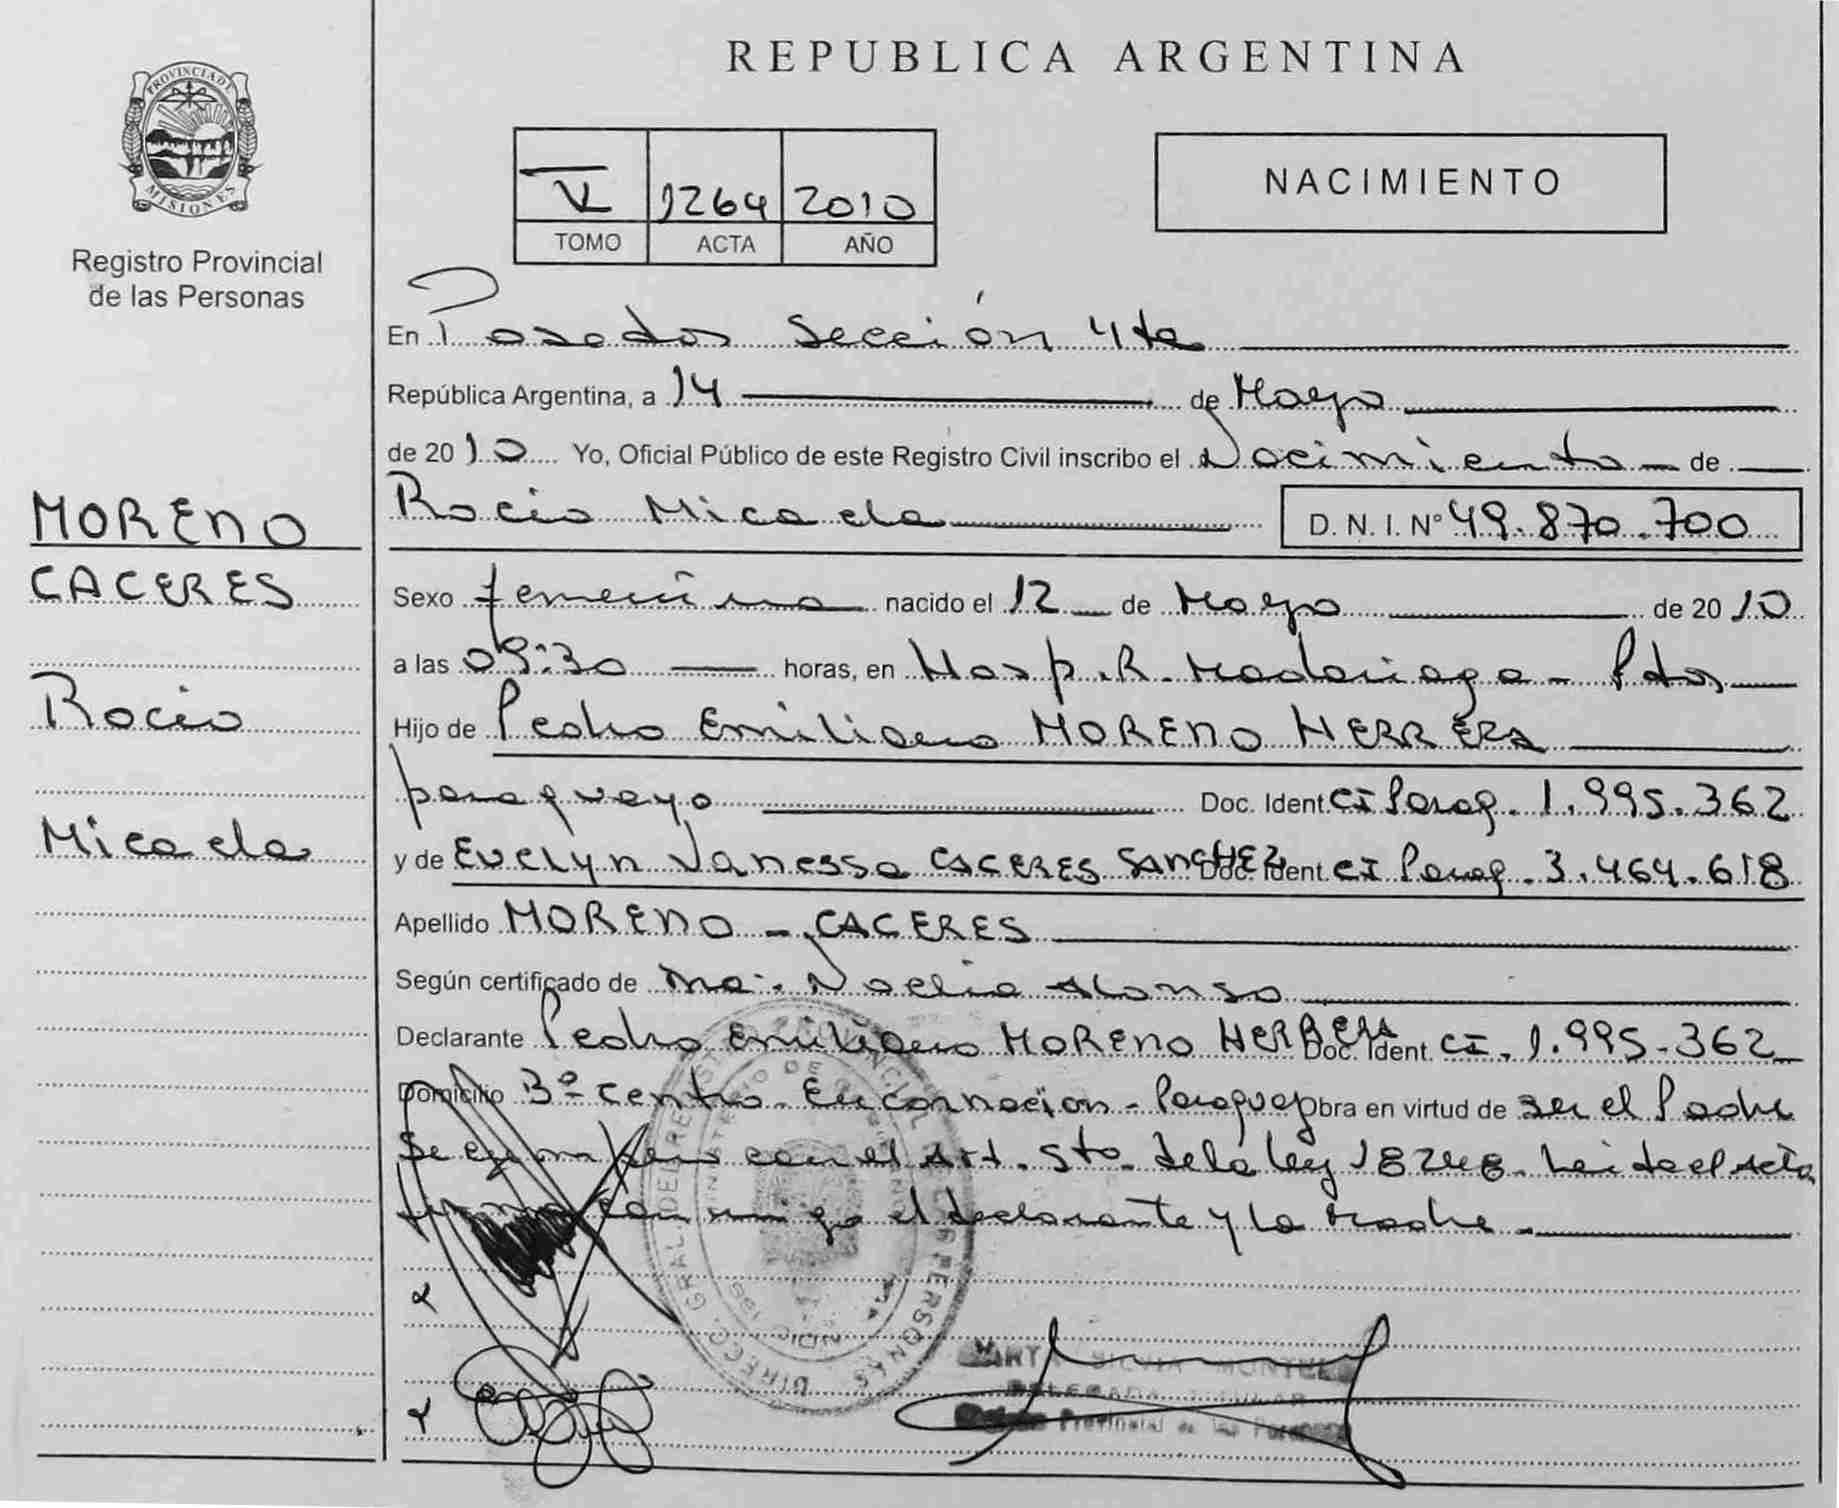 REPUBLICA ARGENTINA
PROVINCIA DE
MISIONES
Registro Provincial
de las Personas
V 1264 2010
TOMO ACTA AÑO
NACIMIENTO
En Posadas Sección 4ta
República Argentina, a 14 de Mayo
de 2010 Yo, Oficial Público de este Registro Civil inscribo el Nacimiento de
Rocio Micaela D. N. I. Nº 49.870.700
MORENO
CACERES
Rocio
Micaela
Sexo femenino nacido el 12 de Mayo de 2010
a las 09:30 horas, en Hosp. R. Madariaga - Pdas
Hijo de Pedro Emiliano MORENO HERRERA
paraguayo Doc. Ident. CI Parag. 1.995.362
y de Evelyn Vanessa CACERES SANCHEZ Doc. Ident. CI Parag. 3.464.618
Apellido MORENO - CACERES
Según certificado de Ma. Noelia Alonso
Declarante Pedro Emiliano MORENO HERRERA Doc. Ident. CI. 1.995.362
Domicilio 3º Centro - Encarnación - Paraguay Obra en virtud de ser el Padre
con el Art. 5to. de la ley 18248. Leida el Acta
firma conmigo el declarante y la Madre.
DIRECC. GRAL. DEL REGISTRO PROVINCIAL DE LAS PERSONAS
MINISTERIO DE GOBIERNO
SILVIA
DELEGADA TITULAR
Provincial de las Personas